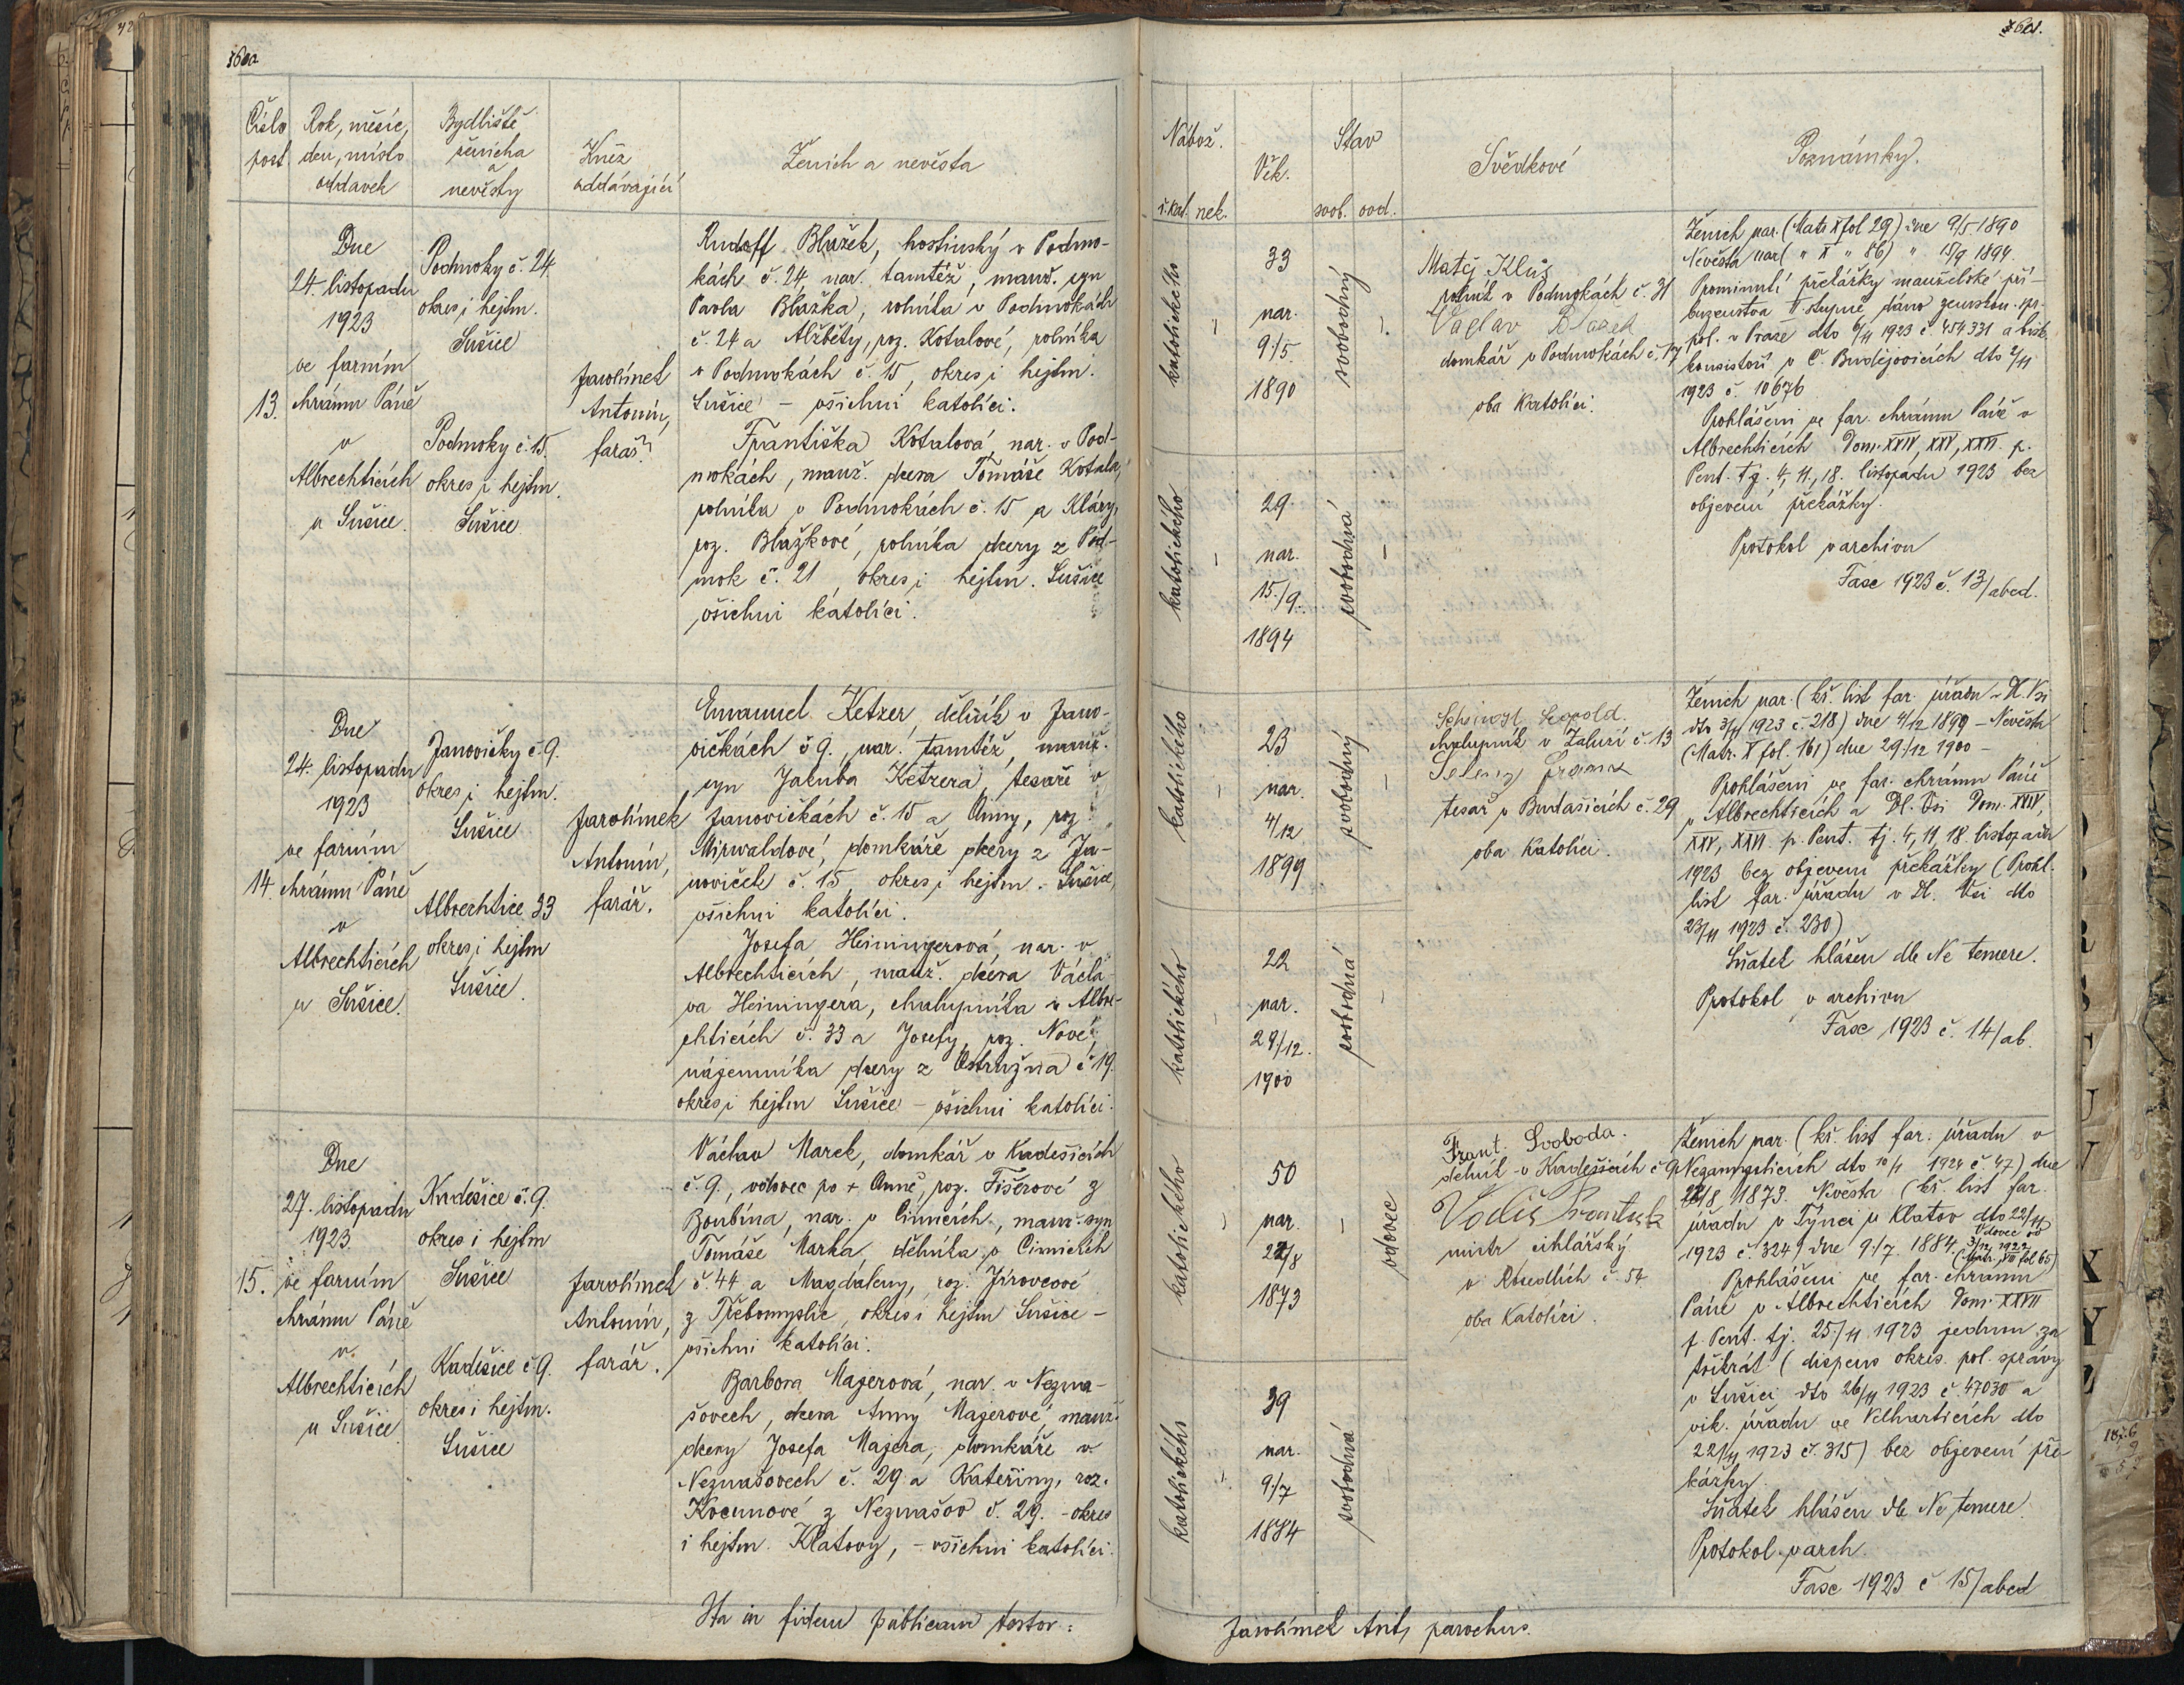 Číslo
post
Rok, měsíc,
den, místo
oddavek
Bydliště
ženicha
a
nevěsty
Kněz
oddávající
Ženich a nevěsta
Nábož.
ř.kat. nek.
Věk.
Stav
svob. vod.
Svědkové
Poznámky.
13.
Dne
24. listopadu
1923
ve farním
chrámu Páně
v
Albrechticích
u Sušice.
Podmoky č. 24.
okres i hejtm.
Sušice
Podmoky č. 15.
okres i hejtm.
Sušice
Jarolímek
Antonín,
farář
Rudolf Blažek, hostinský v Podmo-
kách č. 24, nar. tamtéž, manž. syn
Pavla Blažka, rolníka v Podmokách
č. 24 a Alžběty, roz. Kotalové, rolníka
v Podmokách č. 15, okres i hejtm.
Sušice – všichni katolíci.
Františka Kotalová, nar. v Pod-
mokách, manž. dcera Tomáše Kotala,
rolníka v Podmokách č. 15 a Kláry,
roz. Blažkové, rolníka dcery z Pod-
mok č. 21, okres i hejtm. Sušice
všichni katolíci.
katolického
33
nar.
9./5.
1890
svobodný
katolického
29.
nar.
15./9.
1894
svobodná
Matěj Kluš
rolník v Podmokách č. 31
Václav Blažek
domkář v Podmokách č. 17
oba katolíci.
Ženich nar. (Matr X fol 29) dne 9/5 1890
Nevěsta nar ( " X " 86) " 15/9 1894.
Prominutí překážky manželské pří-
buzenstva II. stupně dáno zemskou. spr.
pol. v Praze dto 6/11 1923 č. 454331 a bisk.
konsistoří v Č. Budějovicích dto 2/11
1923 č. 10676
Prohlášeni ve far. chrámu Páně v
Albrechticích Dom. XXIV, XXV, XXVI. p.
Pent. tj. 4, 11., 18. listopadu 1923 bez
objevení překážky.
Protokol v archivu
Fasc 1923 č. 13/abcd.
14.
Dne
24. listopadu
1923
ve farním
chrámu Páně
v
Albrechticích
u Sušice.
Janovičky č. 9.
okres i hejtm.
Sušice
Albrechtice 33
okres i hejtm
Sušice.
Jarolímek
Antonín,
farář.
Emanuel Ketzer, dělník v Jano-
vičkách č 9., nar. tamtéž, manž.
syn Jakuba Ketzera, tesaře v
Janovičkách č. 15 a Anny, roz
Mirwaldové, domkáře dcery z Ja-
noviček č. 15, okres i hejtm. Sušice,
všichni katolíci.
Josefa Heiningerová, nar. v
Albrechticích, manž. dcera Václa-
va Heiningera, chalupníka v Albre-
chticích č. 33 a Josefy, roz. Nové,
nájemníka dcery z Ostružna č 19.
okres i hejtm Sušice – všichni katolíci.
katolického
23
nar.
4/12
1899
svobodný
katolického
22
nar.
29/12.
1900
svobodná
Leopold.
chalupník v Žaluží č. 13
tesař v Budašicích č. 29
oba katolíci.
Ženich nar. (kř. list far. úřadu v Dl. Vsi
dto 3/11 1923 č. 218) dne 4/12 1899 – Nevěsta
(Matr. X fol. 161) dne 29/12 1900 –
Prohlášeni ve far. chrámu Páně
v Albrechticích a Dl. Vsi Dom. XXIV,
XXV, XXVI p. Pent. tj. 4, 11 18. listopadu
1923 bez objevení překážky (Prohl.
list far. úřadu v Dl. Vsi dto
23/11 1923 č. 230)
Sňatek hlášen dle Ne temere.
Protokol v archivu
Fasc 1923 č. 14/ab.
15.
Dne
27. listopadu
1923
ve farním
chrámu Páně
v
Albrechticích
u Sušice.
Kadešice č. 9.
okres i hejtm
Sušice
Kadešice č 9.
okres i hejtm.
Sušice
Jarolímek
Antonín,
farář.
Václav Marek, domkář v Kadešicích
č. 9., vdovec po + Anně, roz. Fišerové z
Boubína, nar. v Čimicích, manž. syn
Tomáše Marka, dělníka v Čimicích
č. 44 a Magdaleny, roz. Jírovcové
z Třebomyslic, okres i hejtm Sušice –
všichni katolíci.
Barbora Majerová, nar. v Nezna-
šovech, dcera Anny Majerové, manž.
dcery Josefa Majera, domkáře v
Neznašovech č. 29 a Kateřiny, roz.
Kocumové z Neznašov č. 29. – okres
i hejtm. Klatovy, – všichni katolíci.
katolického
50
nar.
22/8
1873
vdovec
katolického
39
nar.
9./7
1884
svobodná
Frant. Svoboda.
dělník v Kadešicích č 9
František
mistr cihlářský
v Rosedlích č. 54
oba katolíci.
Ženich nar. (kř. list far. úřadu v
Nezamyslicích dto 10/1 1924 č. 47) dne
22/8 1873. Nevěsta (kř. list far.
úřadu v Týnci u Klatov dto 22/11
1923 č. 324) dne 9./7. 1884.
Vdovec od
3/12 1922
(Matr. VII fol 65)
Prohlášeni ve far. chrámu
Páně v Albrechticích Dom. XXVII
p. Pent. tj. 25/11 1923 jednou za
třikrát (dispens okres. pol. správy
v Sušici dto 26/11 1923 č. 47030 a
vik. úřadu ve Velharticích dto
22/11 1923 č. 315) bez objevení pře-
kážky.
Sňatek hlášen dle Ne temere.
Protokol v arch.
Fasc 1923 č 15/abcd
Ita in fidem publicam testor:
Jarolímek Ant, parochus.